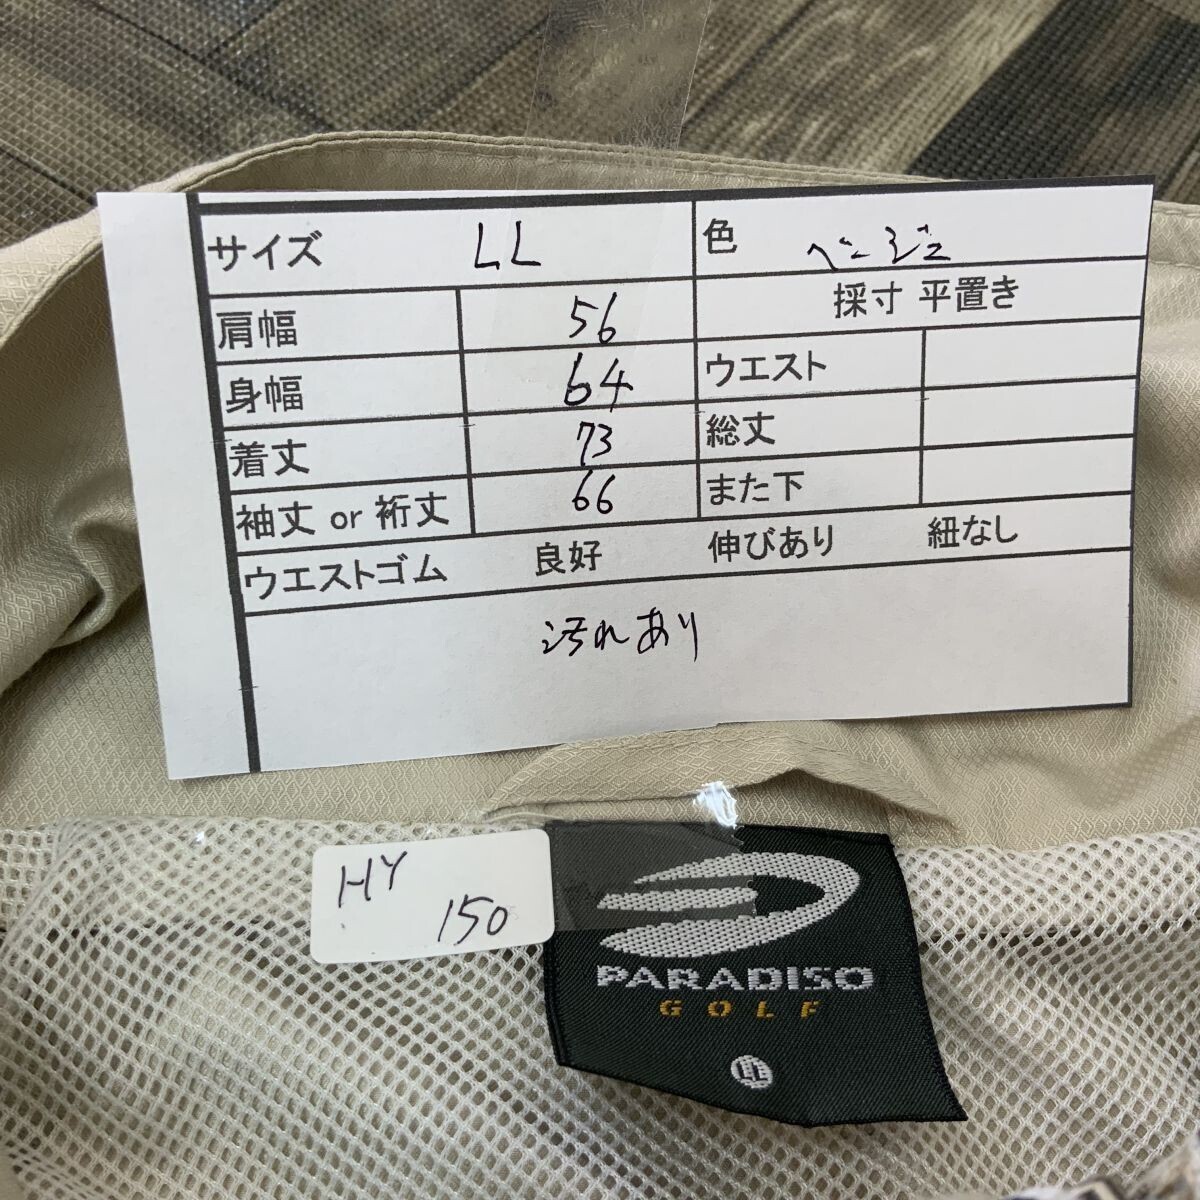 サイズ LL 色 ベージュ
肩幅 56 採寸 平置き
身幅 64 ウエスト
着丈 73 総丈
袖丈 or 裄丈 66 また下
ウエストゴム 良好 伸びあり 紐なし
汚れあり
HY
150
PARADISO
GOLF
LL